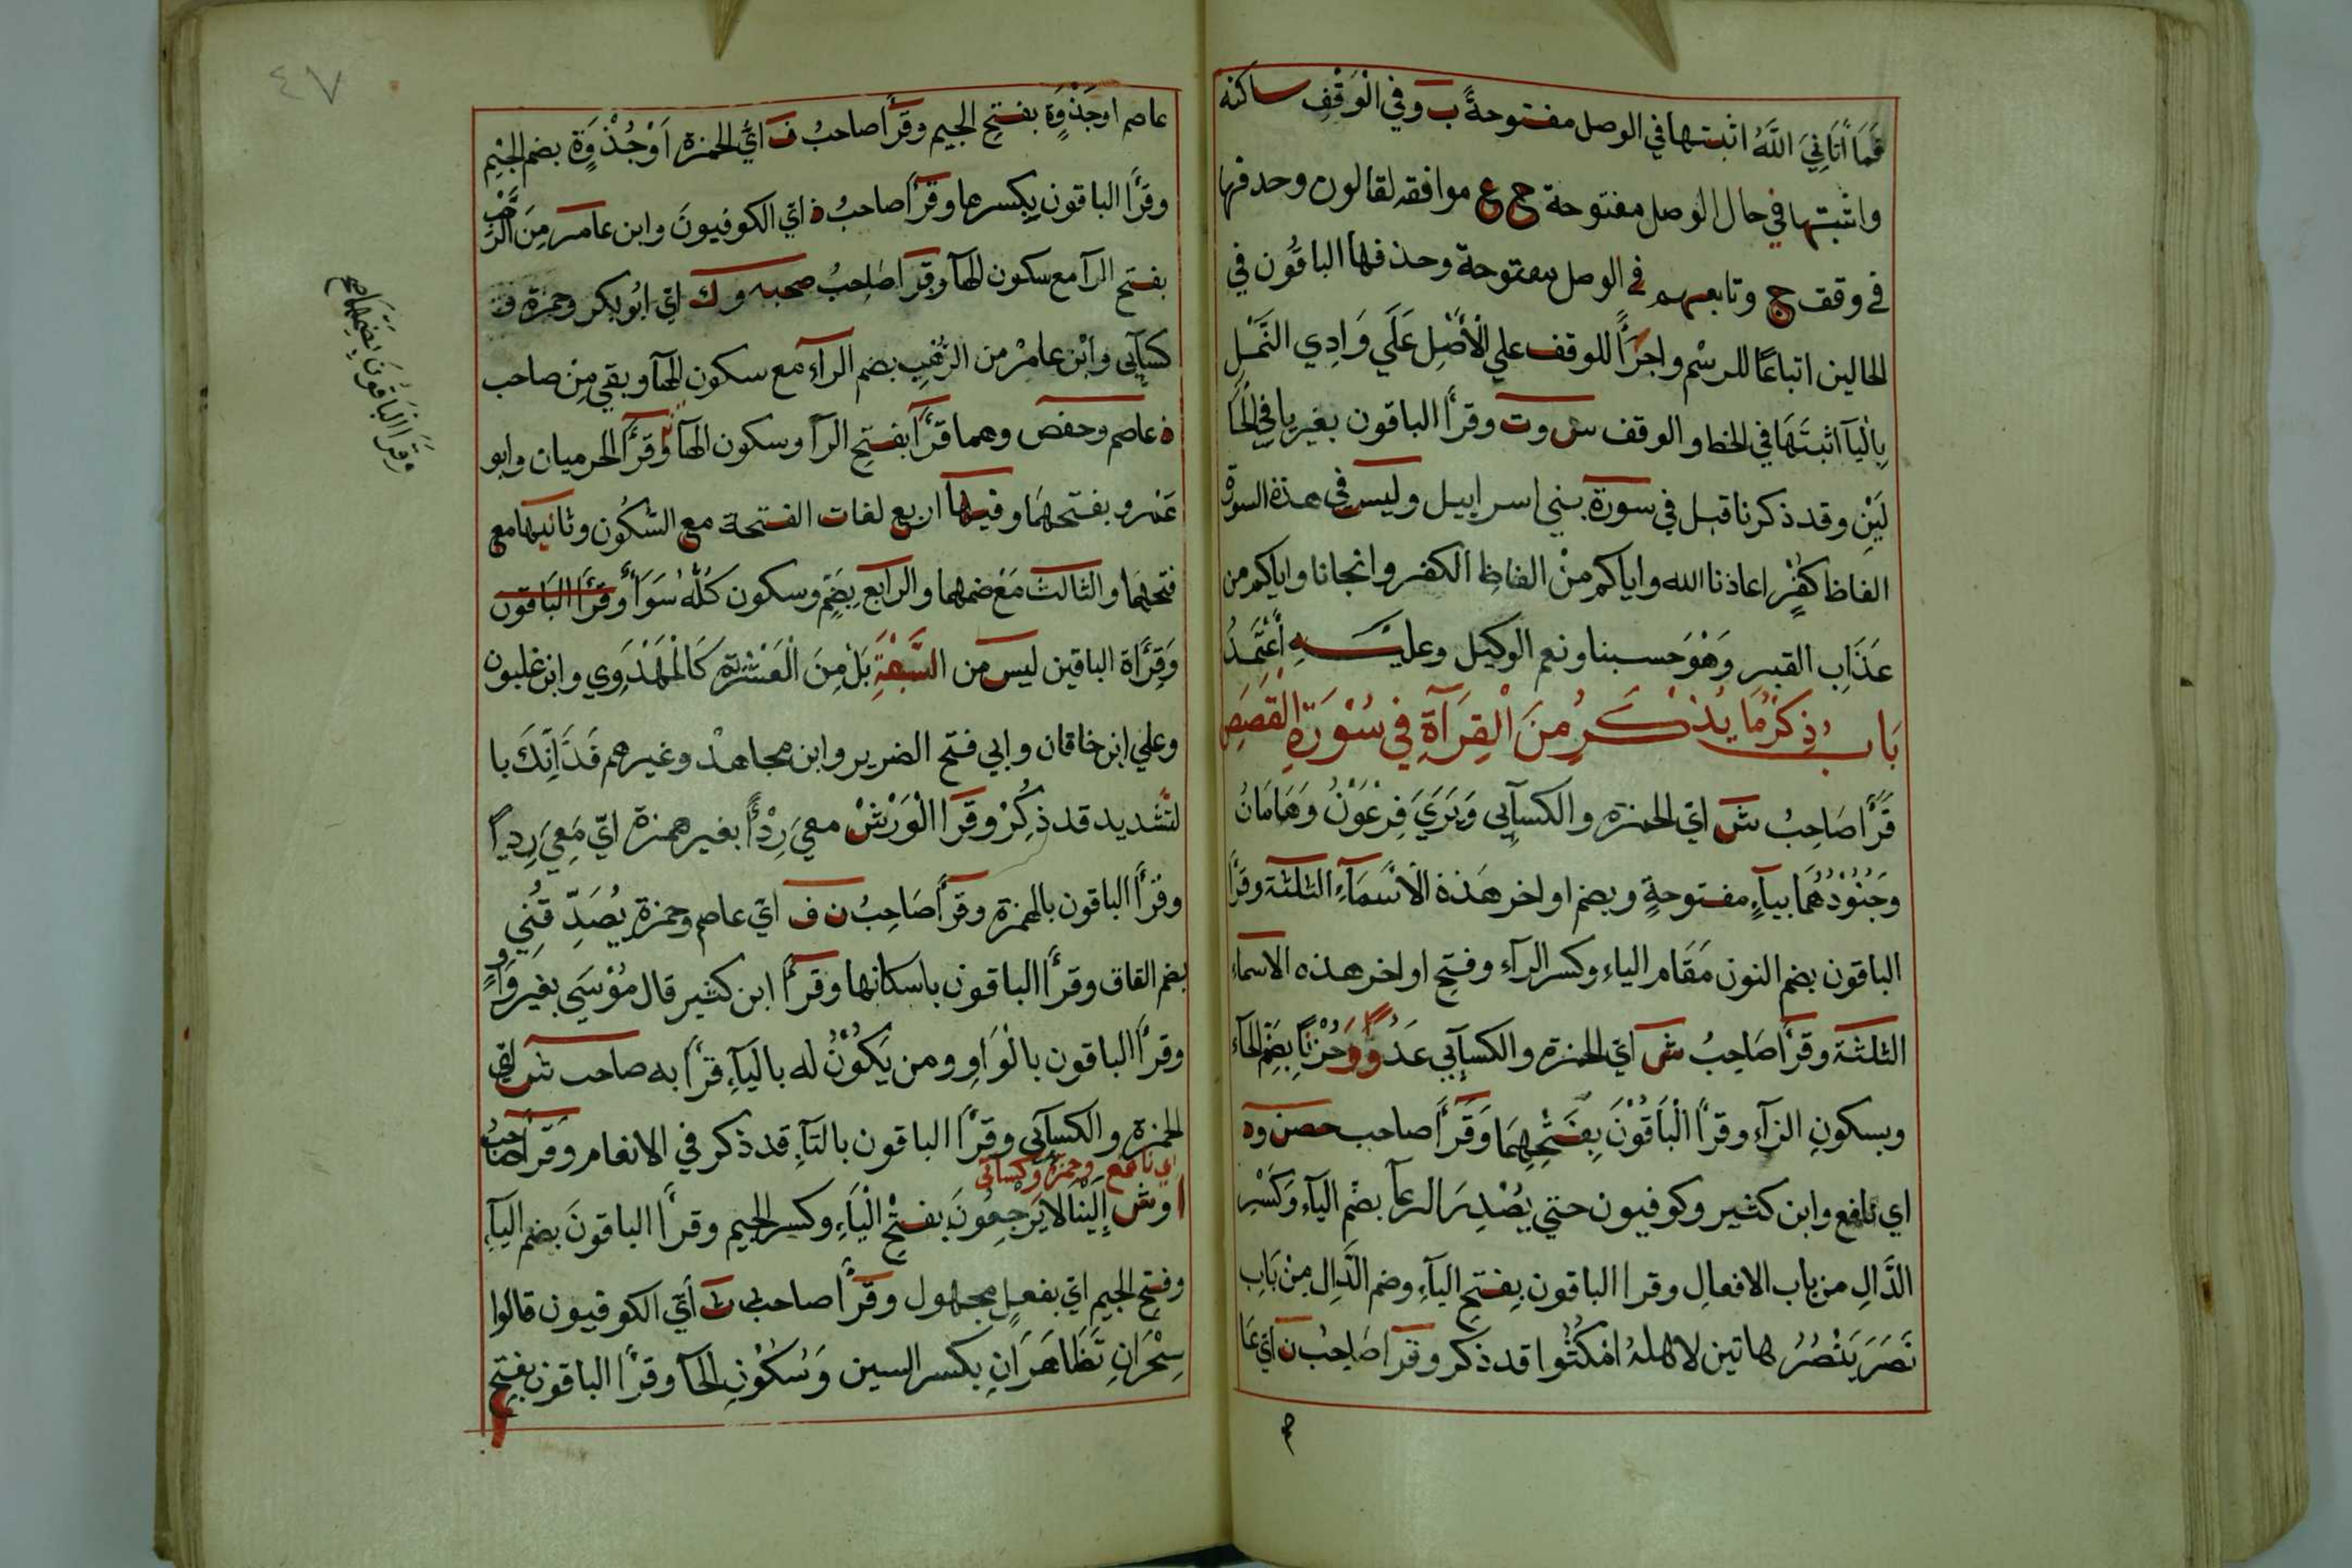 فَمَا اٰتَانِيَ اللَّهُ اثبتها في الوصل مفتوحةً ب وفي الْوَقْفِ ساكنه
واثبتها في حال الوصل مفتوحة ح ع موافقه لقالون وحدفها
في وقف ج وتابعهم في الوصل مفتوحة وحذفها الباقُون في
الحالين اتباعًا للرسْم واجرَأً للوقف علي الْأَصْلِ عَلَي وَادِي النَّمْلِ
بِالْيآ اثبتَهَا في الخط والوقف س وت وقرأ الباقون بغير يا في الْحَا
لَيْنِ وقد ذكرنا قبل في سورة بني اسراييل وليس في هذة السورة
الفاظ كفْرٍ اعاذنا الله واياكم منْ الفاظِ الكفر وانجانا واياكم من
عَذَابِ القبر وَهْوَ حسبنا ونعم الوكيل وعليْهِ أَعْتَمِدُ
بَابُ ذِكْرُ مَا يُذْكَرُ مِنَ الْقِرَآةِ فِي سُوْرَةِ الْقَصَصِ
قَرَأَ صَاحِبُ ش ايّ الحمزه والكسآيي وَيَرَيَ فِرْعَوْنُ وَهَامَانُ
وَجُنُوْدُهُمَا بيآءٍ مفتوحةٍ وبضم اواخر هَذة الْاَسْمَآءِ الثلثة وقرأ
الباقون بضم النون مَقَام الياءِ وكسر الرآءِ وفتحِ اواخر هذه الاسماء
الثلثة وقرأ صَاحِبُ ش ايّ الحمزة والكسآيي عَدُوًّا وَحُزْنًا بِضَمِّ الْحآء
وبسكونِ الزآءِ وقرأ الْبَاقُوْنَ بِفَتْحِهِمَا وَقَرَأَ صاحب حصن وه
اي نافع وابن كثير وكوفيون حتي يُصْدِرَ الرعآ بضَمِّ اليآء وَكَسْرِ
الدَّالِ من باب الافعالِ وقرا الباقون بِفتحِ اليآءِ وضم الدَّالِ مِنْ بَابِ
نَصَرَ يَنْصُرُ هاتين لاهلهُ امْكُثُوا قد ذكر وقرَأ صَاحِبُ ن ايّ عَا
م
٤٧
عاصم اوجَذْوَةٍ بفتحِ الجيم وقَرَأَ صاحبُ ف ايُّ الحمزة اَوْجُذْوَةٍ بضم الجيْمِ
وقرَأَ الباقون بِكسرها وقَرَأَ صاحبُ ذ ايّ الكوفيونَ وابن عامر مِنَ الرَّهْبِ
بفتح الرآ مع سكون الهآ وقَرَأ صَاحِبُ صحبه وك ايّ ابُو بكر وحمزة و
كسآيي وابْن عامرْ من الرُهْبِ بضم الرآءِ مع سكون الهآ وبقي مِنْ صاحب
ذ عاصم وحفص وهما قَرَأَ بفتحِ الرآ وسكون الهآ وَقرَأَ الحرميان وابو
عَمْرو بفتحهِمَا وفيها اربع لغات الفتحة مع السُّكُون وثانيها مع
فتحهِمَا والثالث مَعْ ضمهما والرابع بِضَمٍ وسكون كُلُّهُ سَوَأٌ وقَرَأَ البَاقون
وَقِرَاَة الباقين ليس من السَّبْعَةِ بَلْ مِنَ الْعَشْرَةِ كَالْمَهْدَوِي وابن غلبون
وعلي ابن خاقان وابي فتح الضرير وابن مجاهدْ وغيرهم فَذَانِّكَ با
لتشديد قد ذُكِرْ وقَرَا الْوَرْشْ معيَ رِدْأً بغير همزة ايّ مَعِيَ رِدِيًا
وقَرَأَ الباقون بالهمزة وقَرَأَ صَاحِبُ ن ف ايّ عاصم وحمزة يُصَدِّقُنِي
بضم القاق وقرأ الباقون باسكانها وقَرَأَ ابن كثير قال مُوْسَي بغير وَاوٍ
وقرأ الباقون بالْوَاوِ ومن يَكُوْنُ له باليآءِ قرَأَ به صاحب ش اي
الحمزة والكسآيي وقرَأَ الباقون بالتآءِ قد ذكر في الانعام وَقَرَأَ صاحبُ
اي نافع وحمزة وكسائي
ا وش إِلَيْنَا لَا يَرْجِعُونَ بفتْحِ الْيآءِ وكسر الجيم وقرأ الباقونَ بضم اليآءِ
وفتح الجيم ايّ بفعلٍ مجهول وقَرَأَ صاحب ث أيّ الكوفيون قالوا
سِحْرَانِ تَظَاهَرَانِ بكسر السين وَسُكُوْنِ الحآ وقرأ الباقون بفتحِ
وقرَا البَاقُونَ بضمتَيهما صح